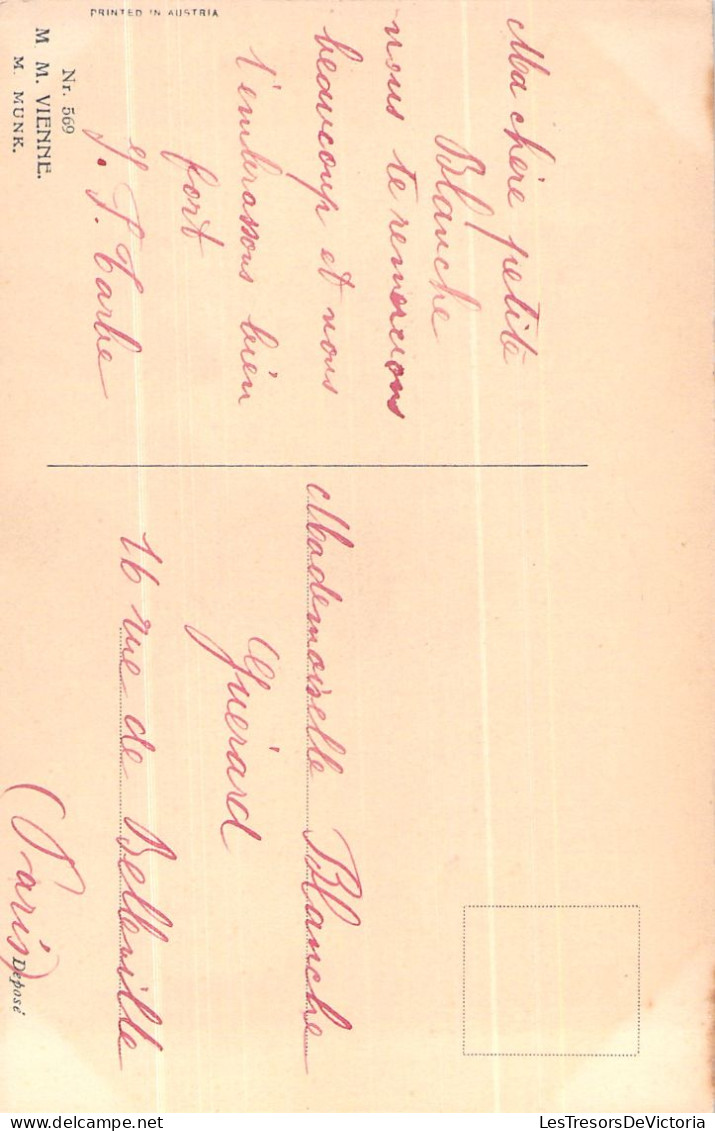 PRINTED IN AUSTRIA
Ma chère petite
Blanche
nous te remercions
beaucoup et nous
t'embrassons bien
fort
J. Tarbe
Nr. 569
M. M. VIENNE.
M. MUNK.
Mademoiselle Blanche
Guérard
16 rue de Belleville
(Paris)
Déposé
delcampe.net
LesTresorsDeVictoria